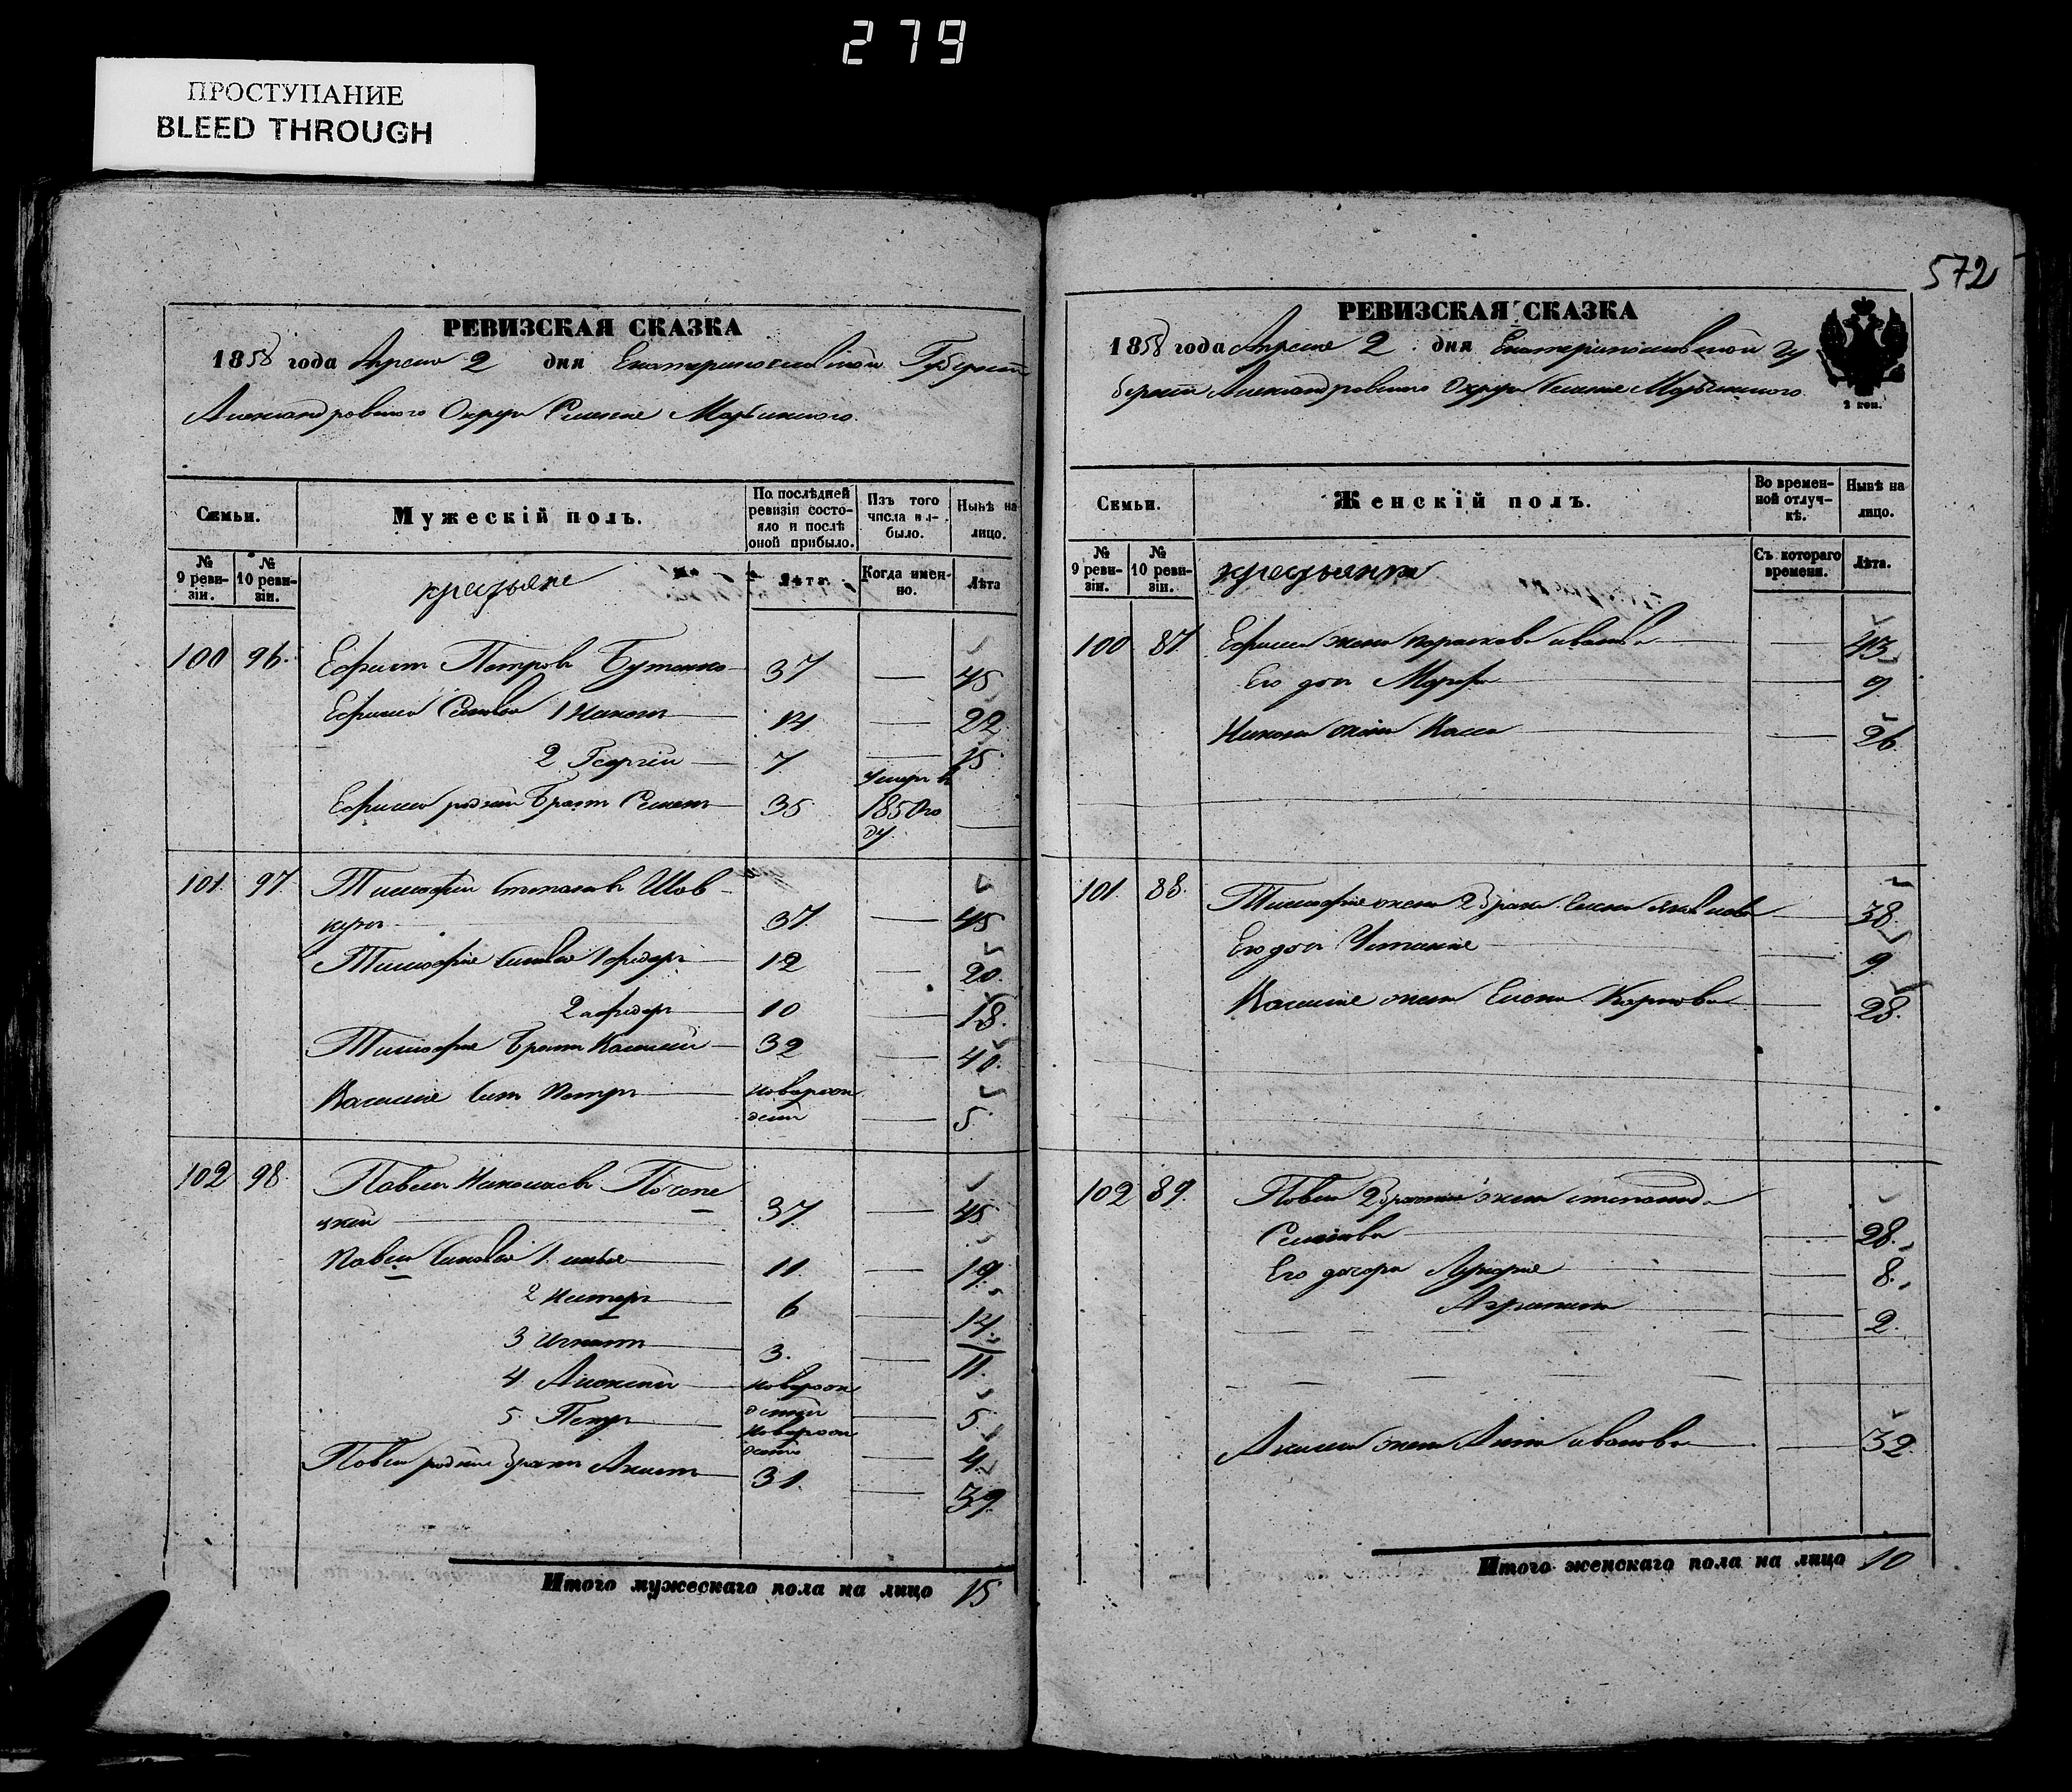 279
ПРОСТУПАНИЕ
BLEED THROUGH
РЕВИЗСКАЯ СКАЗКА
1858 года Апреля 2 дня Екатеринославской Губернии
Александровского Округа Селение Марьинского
Семьи.
Мужескій полъ.
По послѣдней ревизіи состояло и послѣ оной прибыло.
Изъ того числа выбыло.
Нынѣ на лицо.
№ 9 ревизіи.
№ 10 ревизіи.
крестьяне
Лѣта.
Когда именно.
Лѣта
100 96. Ефимъ Петровъ Бутенко 37 — 45
Ефима Сыновья 1 Никонъ 14 — 22
2 Георгій 7 — 15
Ефима родной Братъ Семенъ 35 Умеръ въ 1850 году
101. 97. Тимофей Степановъ Шов-
37. — 45
Тимофея Сыновья 1 Федоръ 12 — 20.
2 Федоръ 10 — 18.
Тимофея Братъ Касьянъ 32 — 40.
Сынъ Петръ новорожденный — 5
102 98. Павелъ Николаевъ
37. — 45
Павла Сыновья 1. Илья 11. — 19.
2 6 14.
3 Игнатъ 3. — 11.
4 Алексей новорожденный — 5.
5. Петръ новорожденный — 4.
Павла родной Братъ Акимъ 31. — 39.
Итого мужескаго пола на лицо 15
572
РЕВИЗСКАЯ СКАЗКА
1858 года Апреля 2 дня Екатеринославской Гу
берніи Александровского Округа Селение Марьинского
2 коп.
Семьи.
Женскій полъ.
Во временной отлучкѣ.
Нынѣ на лицо.
№ 9 ревизіи.
№ 10 ревизіи.
крестьянки
Съ котораго времени.
Лѣта.
100 87. Ефима жена Параскева Иванова — 43
Его дочь Марфа — 9
Никона жена — 26
101. 88. Тимофея жена 2 брака Елена — 38.
Его дочь Устинья — 9
жена Елена Карпова — 28.
102 89. Павла 2 брака жена Степанида
28.
Его дочери 8.
2.
Акима жена Анна Иванова — 32.
Итого женскаго пола на лицо 10